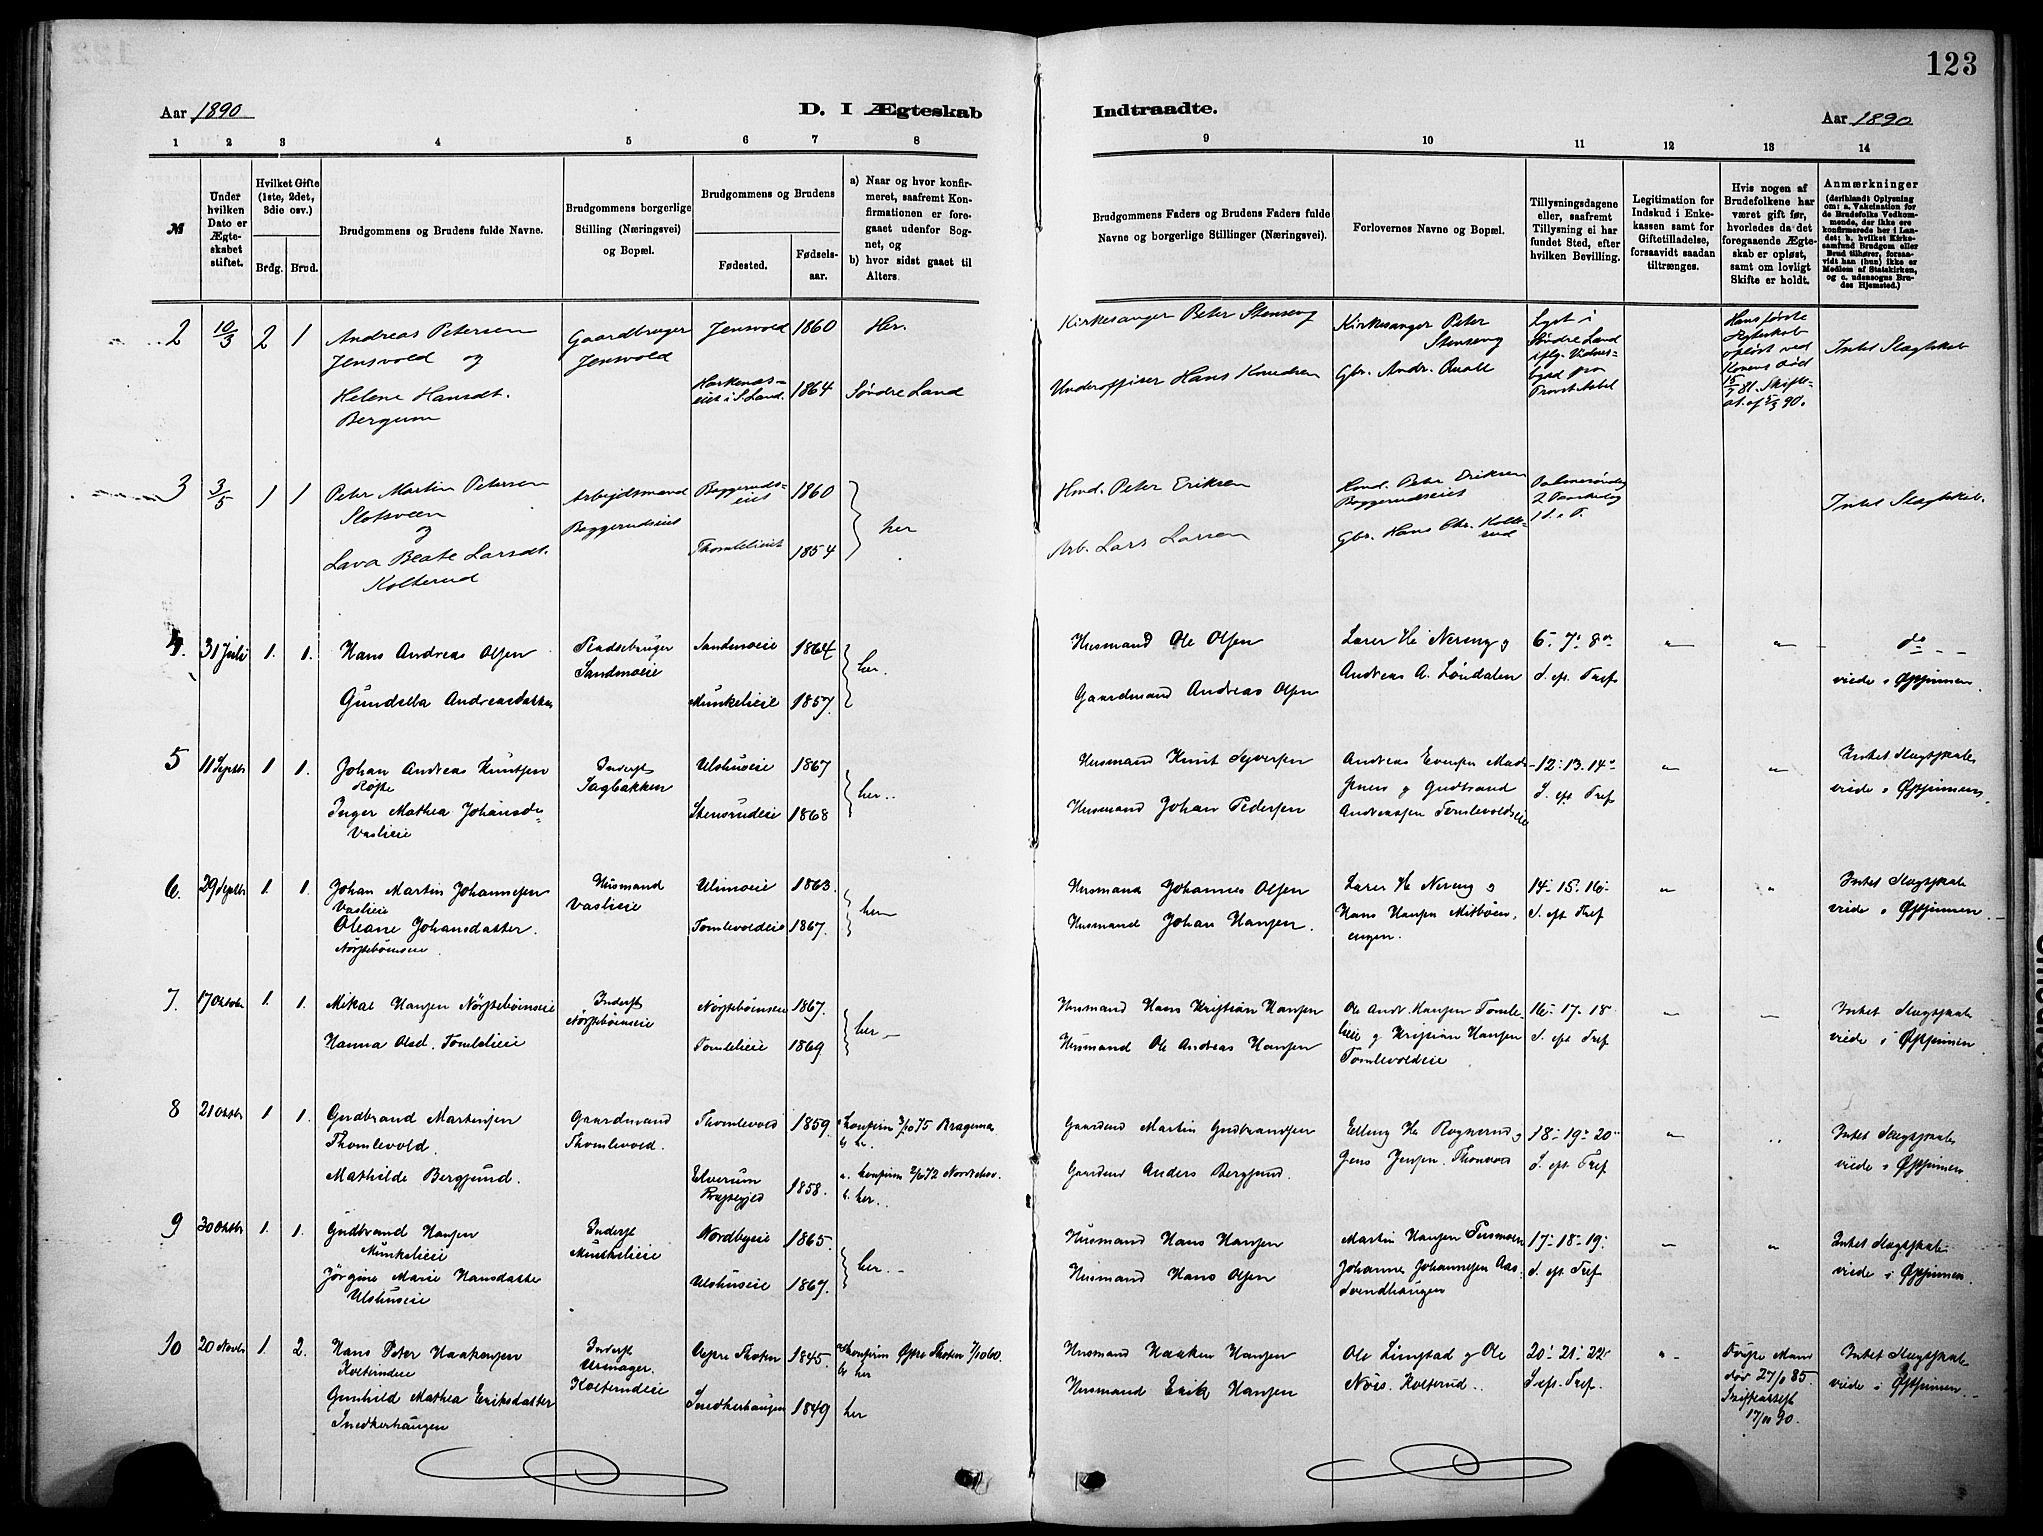 Aar 1890
D. I Ægteskab
1 2 3 4 5 6 7 8
№
Under hvilken Dato er Ægteskabet stiftet.
Hvilket Gifte (1ste, 2det, 3die osv.)
Brdg. Brud.
Brudgommens og Brudens fulde Navne.
Brudgommens borgerlige Stilling (Næringsvei) og Bopæl.
Brudgommens og Brudens
Fødested. Fødselsaar.
a) Naar og hvor konfirmeret, saafremt Konfirmationen er foregaaet udenfor Sognet, og
b) hvor sidst gaaet til Alters.
2 10/3 2 1 Andreas Petersen Gaardbruger Jensvold 1860 Her.
Jensvold og Jensvold
Helene Hansdt. Harkenæseiet i S. Land. 1864 Søndre Land
Bergum
3 3/5 1 1 Peter Martin Petersen Arbejdsmand Baggerudseiet 1860
Slotsveen Baggerudseiet her
og
Lava Beate Larsdt. Thomleliet 1854
Kolterud
4. 31 Juli 1. 1. Hans Andreas Olsen Pladsebruger Sandmoeie 1864
Sandmoeie her.
Gundelba Andreasdatter Munkelieie 1857.
5 11 Septbr 1 1. Johan Andreas Knutsen Inderst Ulshuseie 1867
Røste Sagbakken her..
Inger Mathea Johansd= Stensrudeie 1868
Vaslieie
6. 29 Septbr 1. 1. Johan Martin Johannesen Husmand Ulimoeie 1863
Vaslieie Vaslieie her
Oleane Johansdatter. Tomlevoldeie 1867.
Nørstebøenseie
7. 17 Oktober 1. 1. Mikal Hansen Nørstebøenseie Inderst Nørstebøenseie 1867.
Nørstebøenseie her
Hanna Olsd. Tomlelieie Tomlelieie 1869
8 21 Oktbr 1 1. Gudbrand Martinsen Gaardmand Thomlevold 1859. a. konfirm 3/10 75 Bragernæs
Thomlevold. Thomlevold. b. h.
Mathilde Bergsund. Elverum Præstegjed 1858. a. konfirm 2/6 72 Nordrehov.
b. her.
9 30 Oktbr 1. 1. Gudbrand Hansen Inderst Nordbyeie 1865.
Munkelieie Munkelieie her.
Jørgine Marie Hansdatter Ulshuseie 1867.
Ulshuseie
10 20 Novbr 1. 2. Hans Peter Haakensen Inderst Vestre Thoten 1845. a. konfirm Østre Thoten 7/10 60.
Kolterudeie Urmager. b. her
Kolterudeie
Gunhild Mathea Eriksdatter Snedkerhaugen 1849 her
Snedkerhaugen
123
Indtraadte. Aar 1890
9 10 11 12 13 14
Brudgommens Faders og Brudens Faders fulde Navne og borgerlige Stillinger (Næringsvei).
Forlovernes Navne og Bopæl.
Tillysningsdagene eller, saafremt Tillysning ei har fundet Sted, efter hvilken Bevilling.
Legitimation for Indskud i Enkekassen samt for Giftetilladelse, forsaavidt saadan tiltrænges.
Hvis nogen af Brudefolkene har været gift før, hvorledes da det foregaaende Ægteskab er opløst, samt om lovligt Skifte er holdt.
Anmærkninger (deriblandt Oplysning om: a. Vakcination for de Brudefolks Vedkommende, der ikke ere konfirmerede her i Landet; b. hvilket Kirkesamfund Brudgom eller Brud tilhører, forsaavidt han (hun) ikke er Medlem af Statskirken, og c. udensogns Brudes Hjemsted.)
Kirkesanger Peter Stenseng Kirkesanger Peter Stenseng
Underoffiser Hans Knudsen Gbr. Andr. Qvale
Lyst i Søndre Land iflg. Vidnesbyrd fra Provst Abel
Hans første Ægteskab opløst ved Konens død 15/7 81. Skifteat. af 5/3 90.
Intet Slægtskab
Hmd. Peter Eriksen Hmd. Peter Eriksen Baggerudseiet Palmesøndag
Arb. Lars Larsen Gbr. Hans Chr. Kolterud 2 Paaskedag
1 S. e. P.
Intet Slægtskab.
Husmand Ole Olsen Lærer He Nereng og 6- 7- 8de do
Gaardmand Andreas Olsen Andreas A. Løndalen S. eft Tref viede i Østsinnen.
Husmand Knut Syversen Andreas Evensen Mad- 12- 13- 14de Intet Slægtskab
Husmand Johan Pedersen Jenens og Gudbrand S. eft Tref viede i Østsinnen
Andreassen Tomlevoldseie
Husmand Johannes Olsen Lærer He Nereng og 14- 15- 16- Intet Slægtskab
Husmand Johan Hansen. Hans Hansen Midbøenengen. S. eft Tref viede i Østsinnen
Husmand Hans Kristian Hansen Ole Andr. Hansen Tomlelieie og Kristian Hansen 16- 17- 18 Intet Slægtskab
Husmand Ole Andreas Hansen Tomlevoldeie S. eft Tref viede i Østsinnen
Gaardmd Martin Gudbrandsen Elling He Rognerud og 18- 19- 20 Intet Slægtskab
Gaardmd Anders Bergsund. Jens Jensen. Thonvold S. eft Tref viede i Østsinnen
Husmand Hans Hansen Martin Hansen 17- 18- 19- Intet Slægtskab
Husmand Hans Olsen Johannes Johannesen Aas- S. eft Tref viede i Østsinnen.
Svendhaugen
Husmand Haaken Hansen Ole Limstad og Ole 20- 21- 22 Første Mand død 27/11 85 Intet Slægtskab
Husmand Erik Hansen Nøis. Kolterud. S. eft. Tref. Skifteattest 17/11 90. viede i Østsinnen.